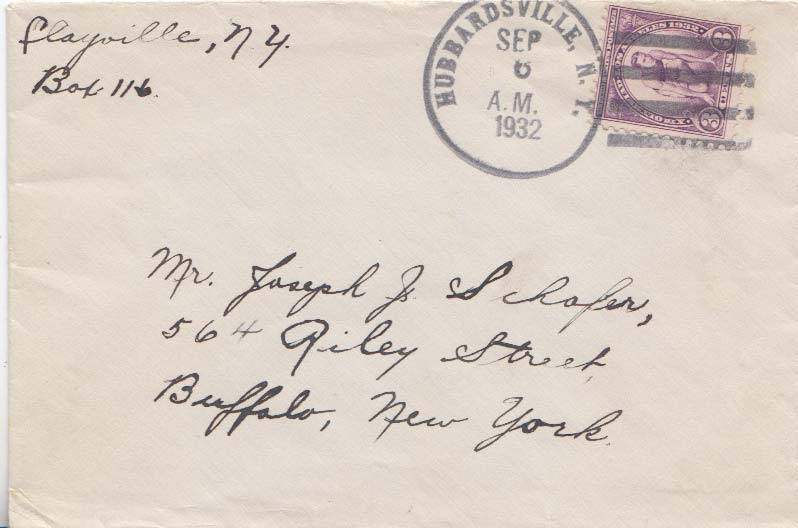 Clayville, N.Y.
Box 116.
HUBBARDSVILLE, N.Y.
SEP
6
A.M.
1932
3 3
Mr. Joseph J. Schafer,
564 Riley Street
Buffalo, New York.